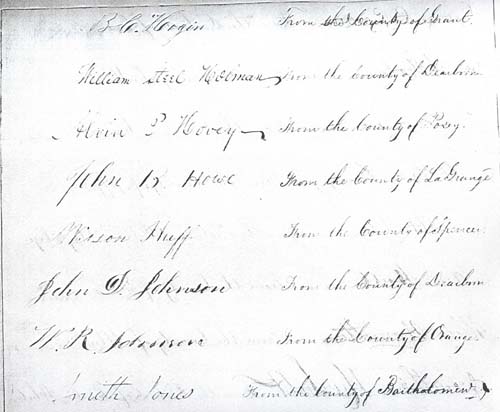 B. C. Hogin From the County of Grant.
William Steel Holman From the County of Dearborn
Alvin P Hovey From the County of Posey.
John B Howe From the County of La Grange
Huff From the County of Spencer.
John D. Johnson From the County of Dearborn
W. R. Johnson From the County of Orange.
Smith Jones From the County of Bartholomew